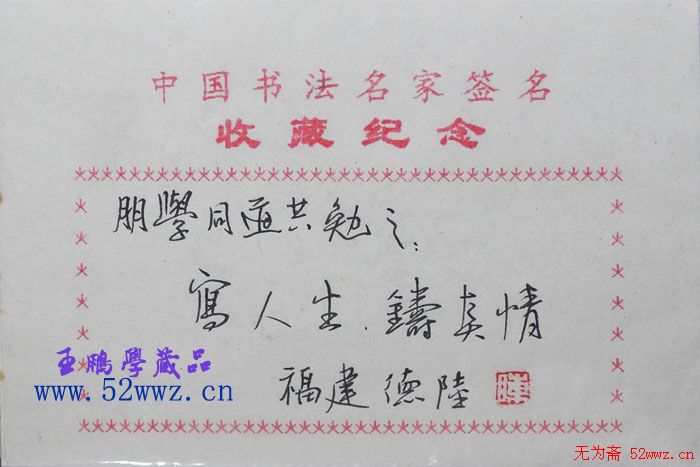 中国书法名家签名
收藏纪念
朋學同道共勉之:
寫人生.鑄真情
福建德陸
王鵬學藏品
www.52wwz.cn
无为斋 52wwz.cn